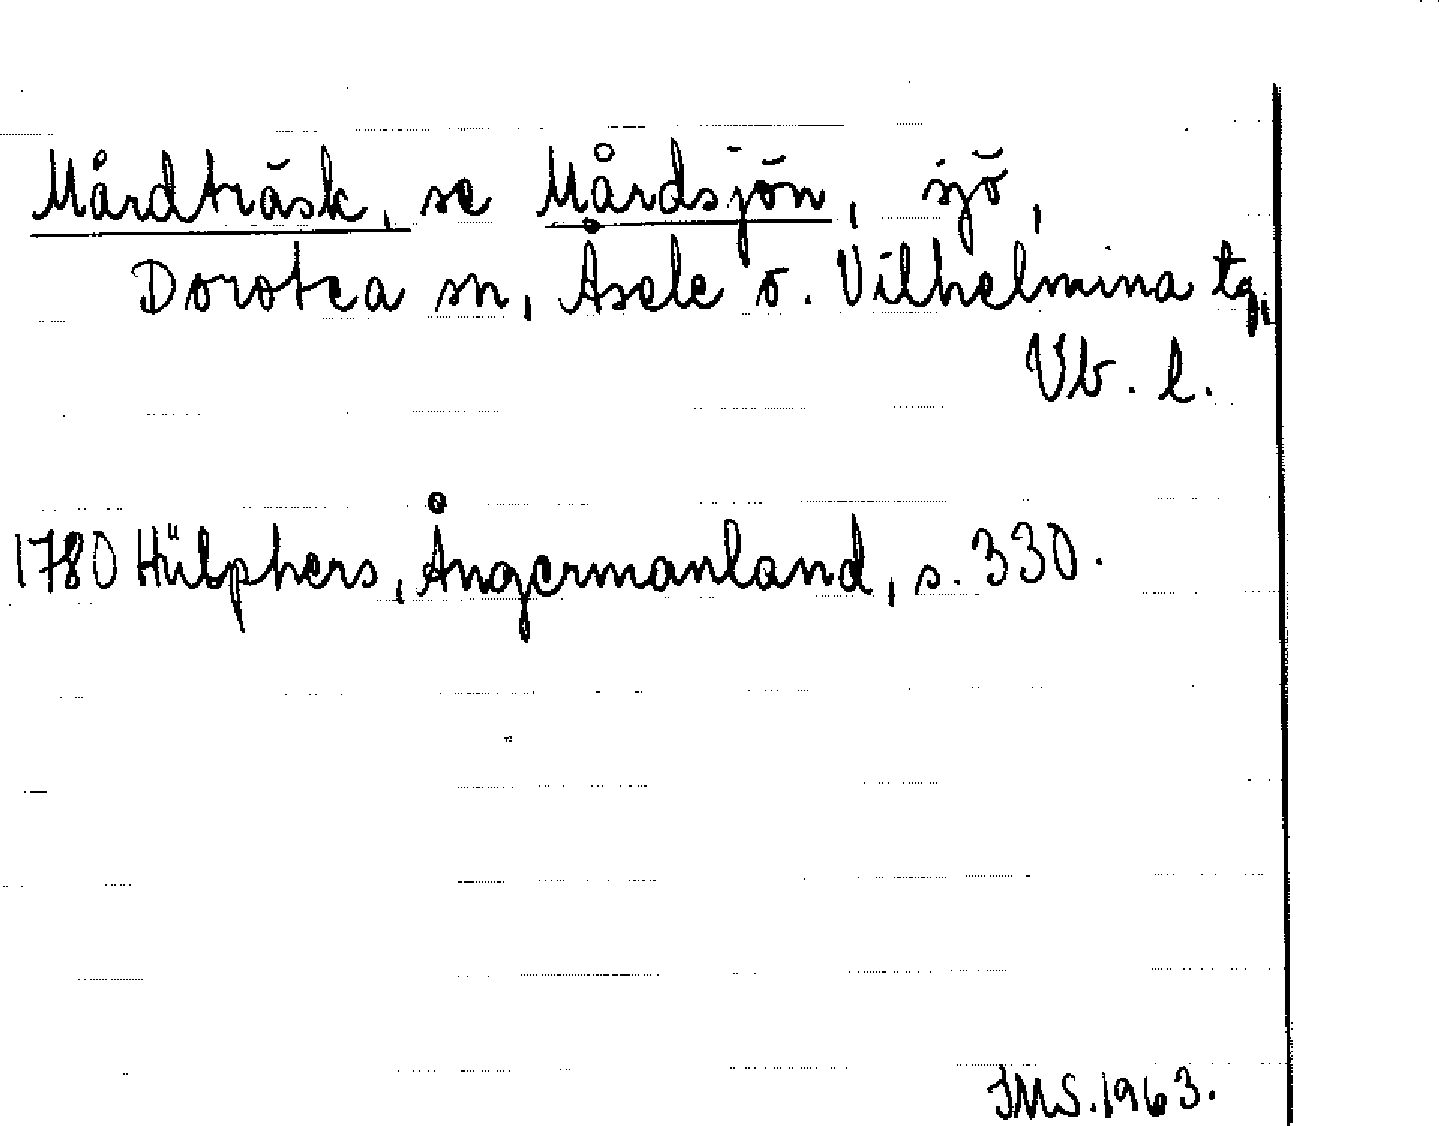 Mårdträsk, se Mårdsjön, sjö,
Dorotea sn, Åsele o. Vilhelmina tg,
Vb. l.
1780 Hülphers, Ångermanland, s. 330.
IMS. 1963.